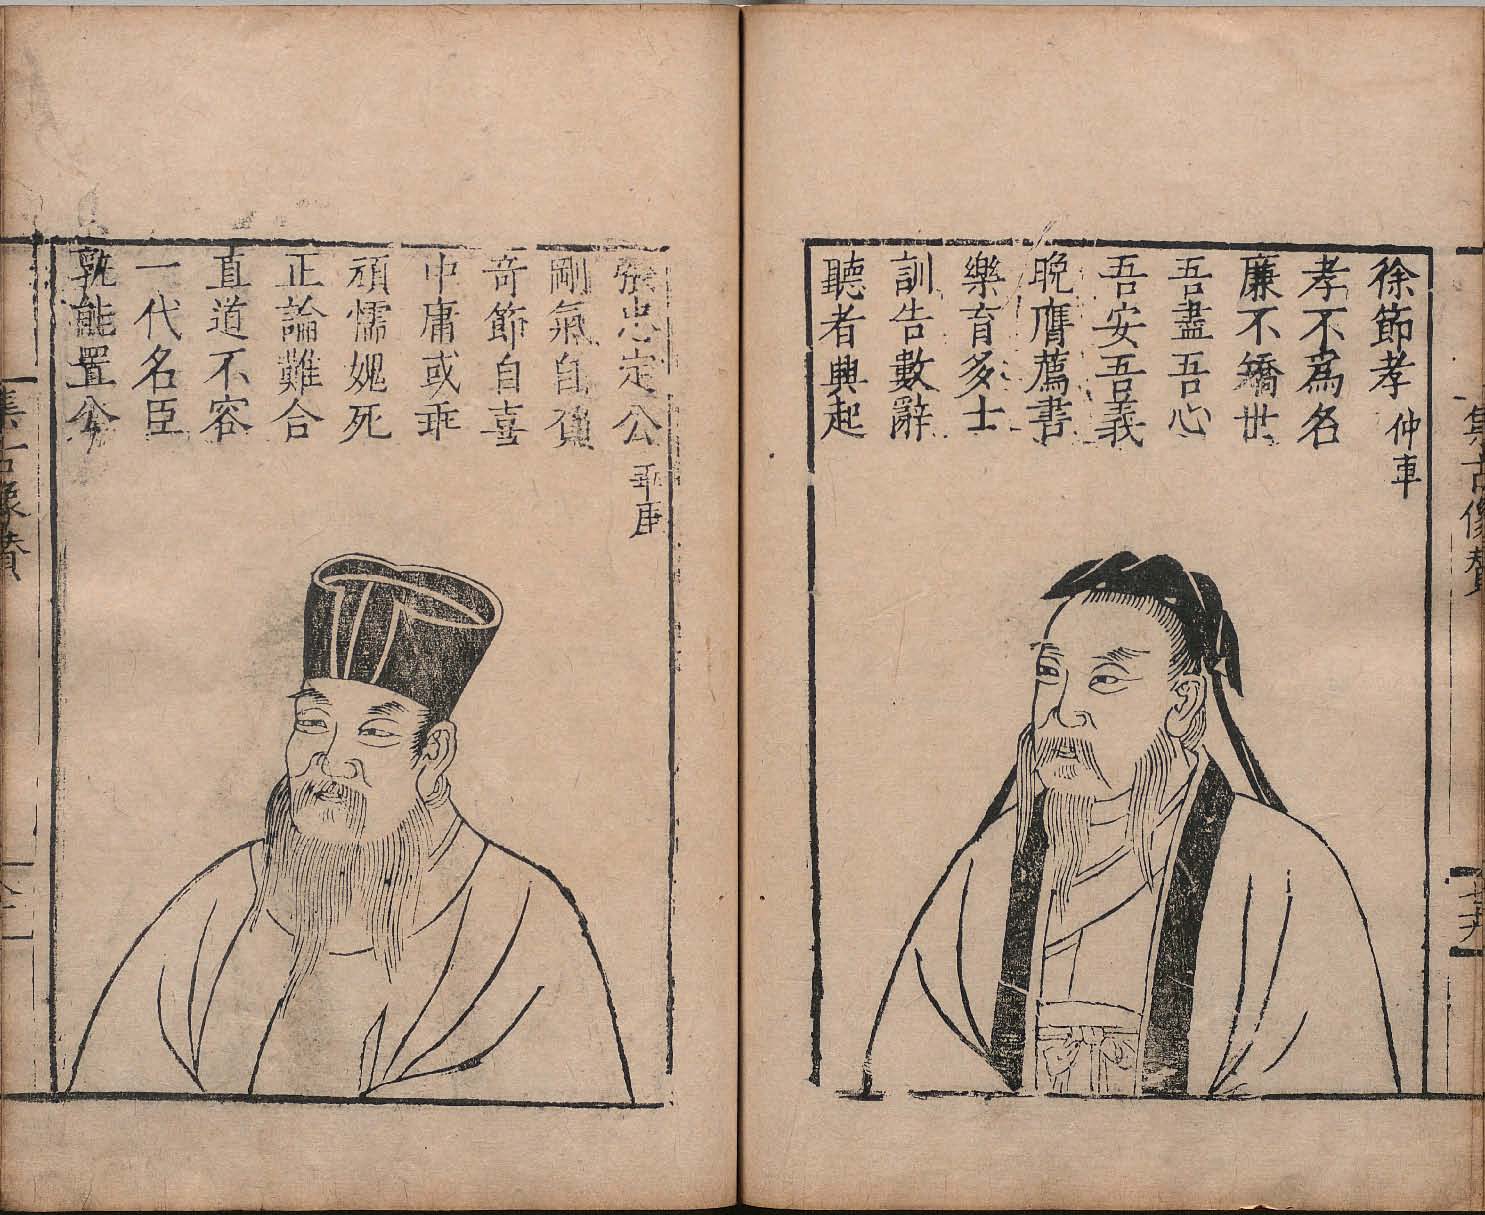 集古像贊
七九
徐節孝 仲車
孝不爲名
廉不矯世
吾盡吾心
吾安吾義
晩膺薦書
樂育多士
訓告數辭
聽者興起
張忠定公 乖崖
剛氣自負
奇節自喜
中庸或乖
頑懦媿死
正論難合
直道不容
一代名臣
孰能置公
集古像贊